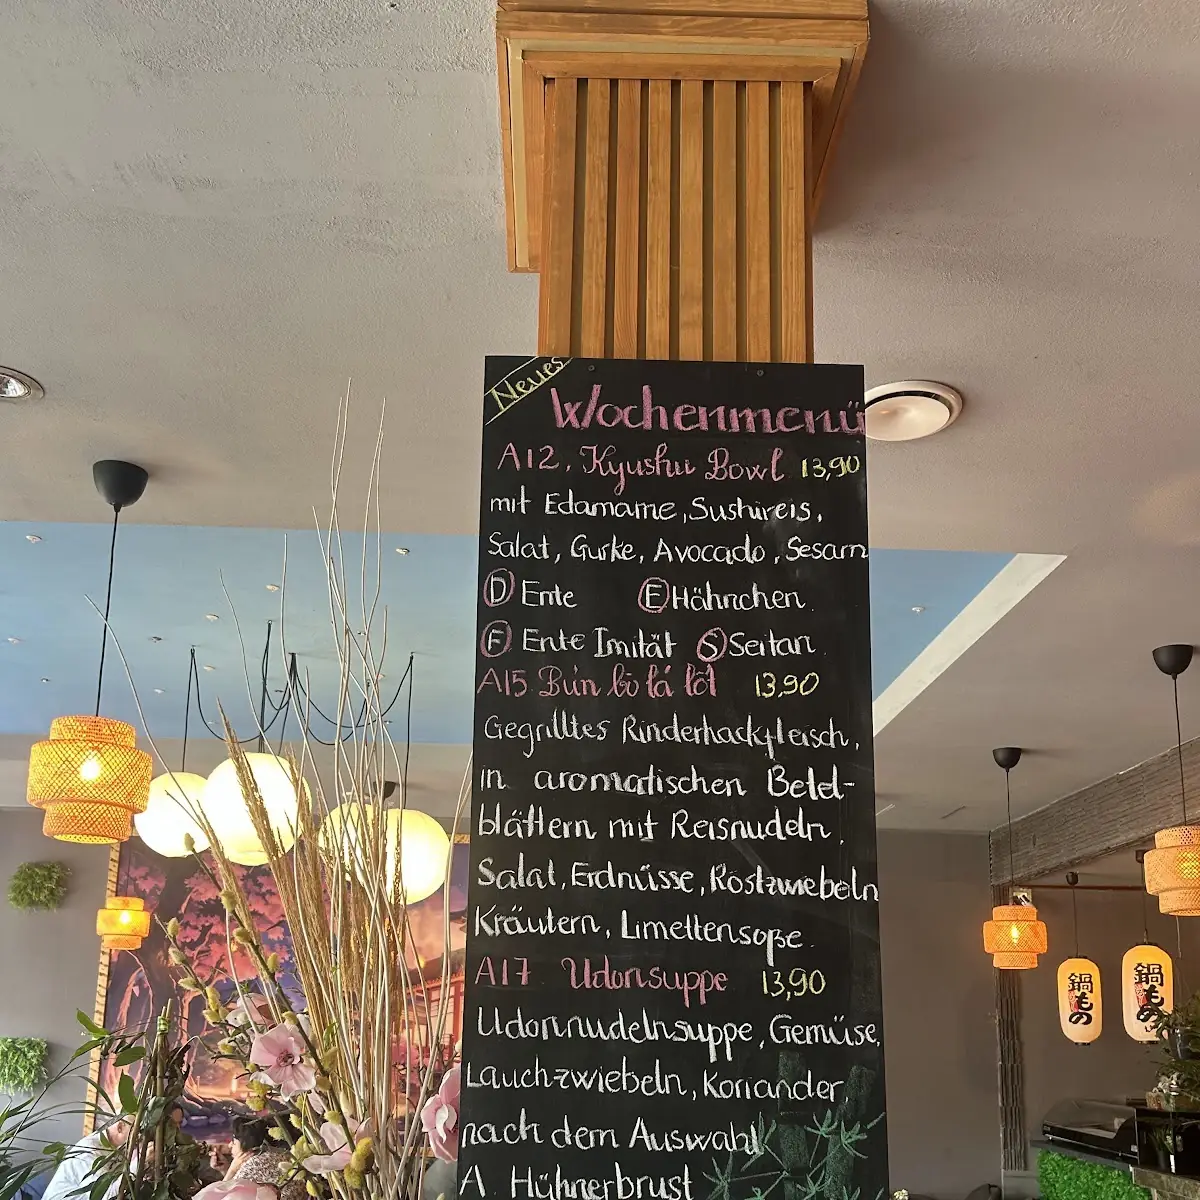 Neues
Wochenmenü
A12. Kyushu Bowl 13,90
mit Edamame, Sushireis,
Salat, Gurke, Avocado, Sesam
D Ente E Hähnchen.
F Ente Imität S Seitan.
A15 Bún bò lá lốt 13,90
Gegrilltes Rinderhackfleisch,
in aromatischen Betel-
blättern mit Reisnudeln,
Salat, Erdnüsse, Röstzwiebeln
Kräutern, Limettensoße.
A17 Udonsuppe 13,90
Udonnudelnsuppe, Gemüse,
Lauchzwiebeln, Koriander,
nach dem Auswahl
A Hühnerbrust
鍋もの
鍋もの